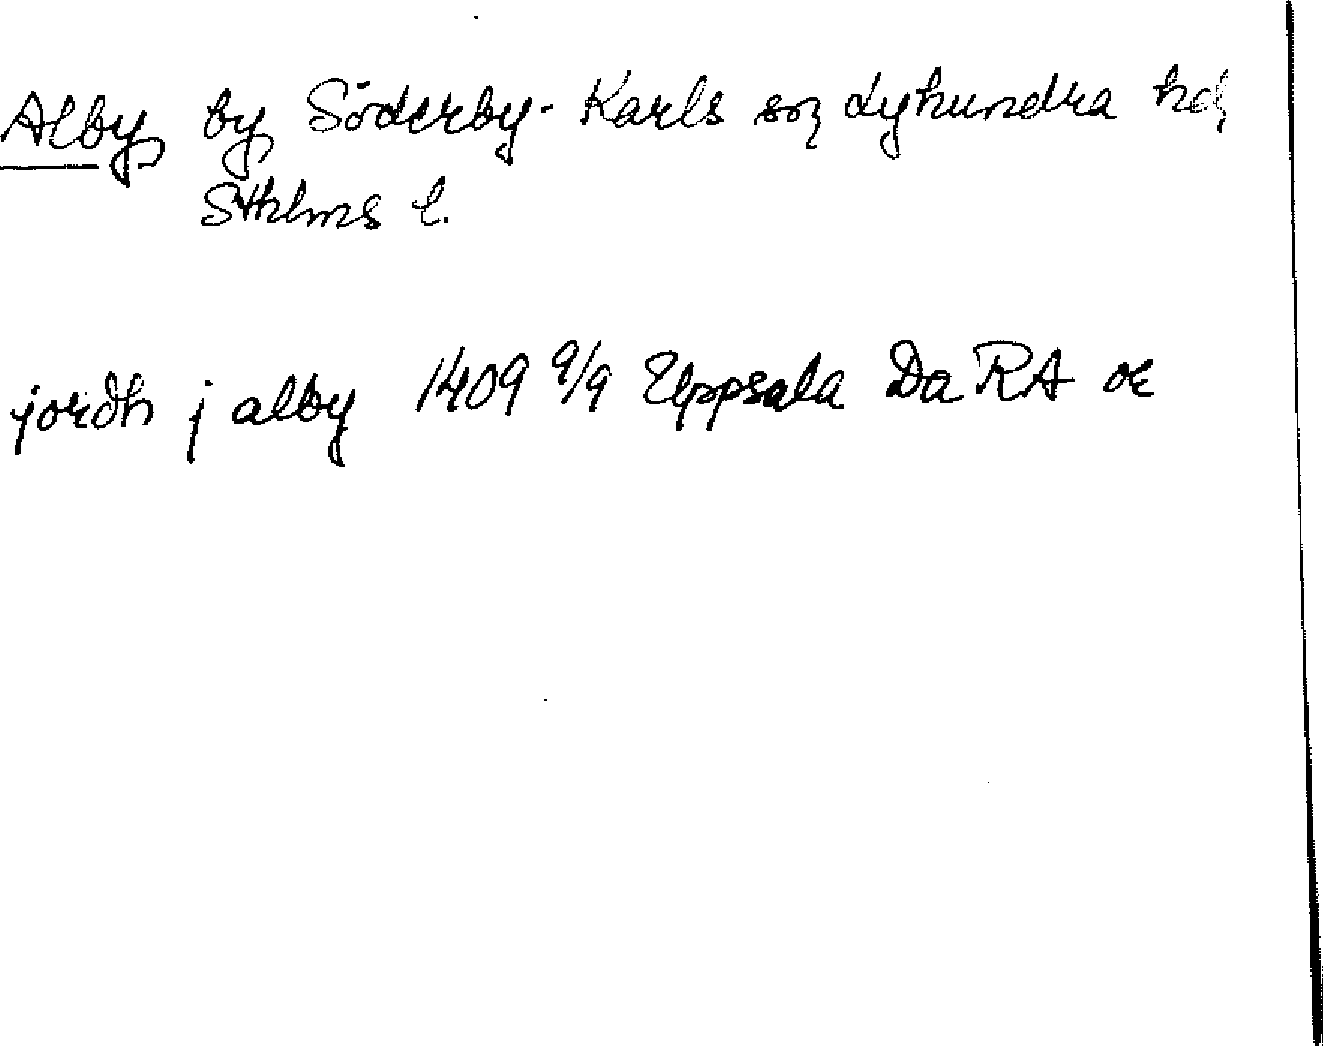 Alby, by, Söderby-Karls sn, Lyhundra hd,
Sthlms l.
jordh j alby 1409 9/9 Uppsala Da RA or